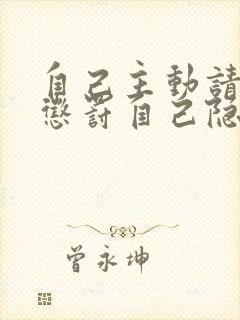 自己主動請
懲罰自己隐
曾永坤